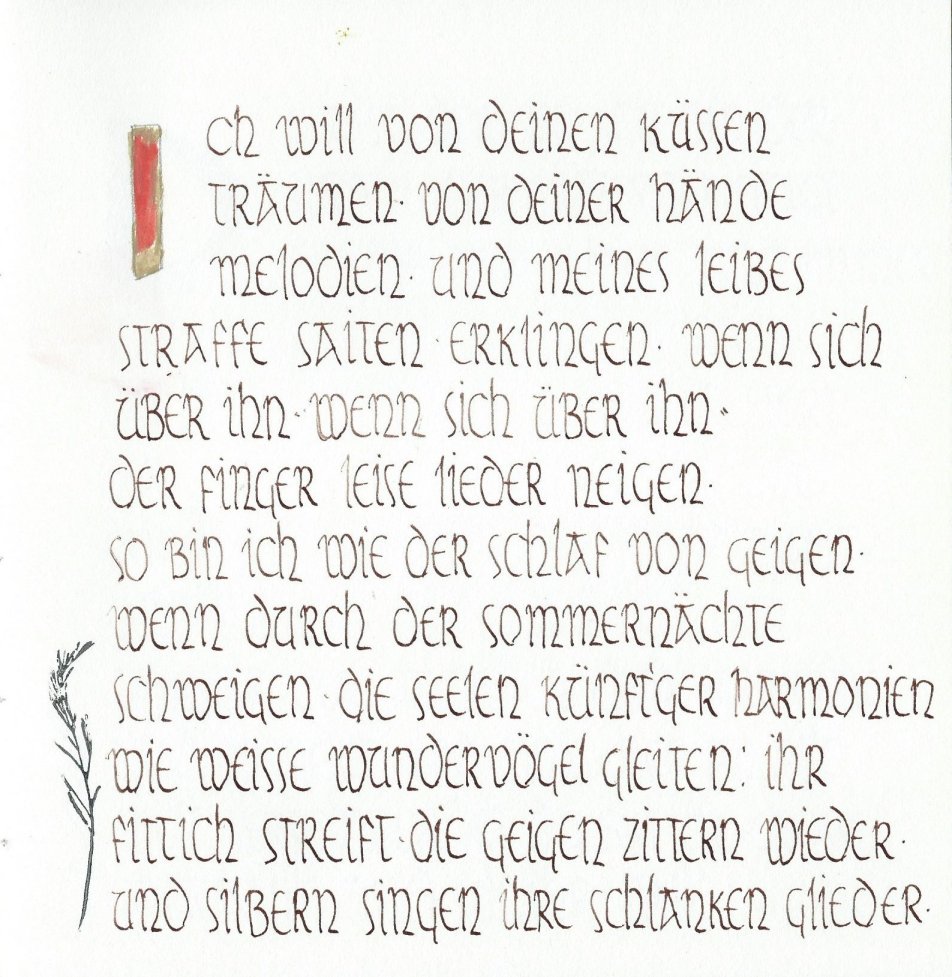 Ich will von deinen Küssen
träumen · von deiner Hände
Melodien · und meines Leibes
straffe Saiten · erklingen · wenn sich
über ihn · wenn sich über ihn ·
der Finger leise Lieder neigen ·
so bin ich wie der Schlaf von Geigen ·
wenn durch der Sommernächte
Schweigen · die Seelen künft'ger Harmonien
wie weisse Wundervögel gleiten: ihr
Fittich streift · die Geigen zittern wieder ·
und silbern singen ihre schlanken Glieder ·